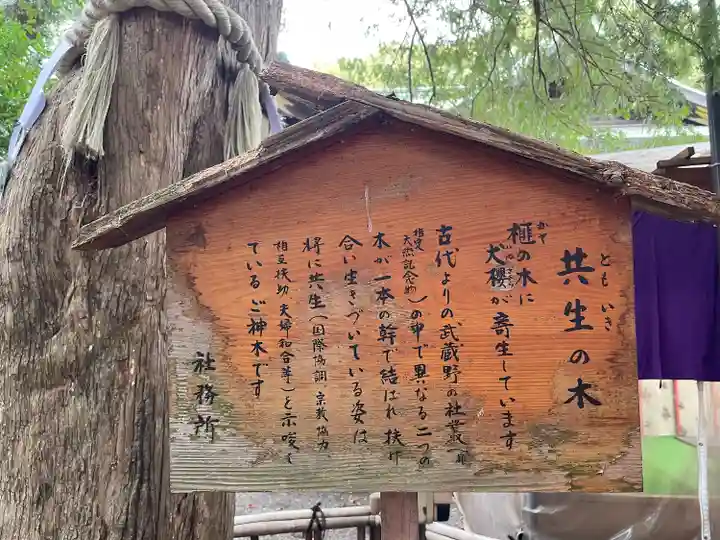 ともいき
共生の木
かや
榧の木に
犬櫻が寄生しています
古代よりの武蔵野の社叢
(指定
天然記念物)の中で異なる二つの
木が一本の幹で結ばれ扶け
合い生きづいている姿は
将に共生(国際協調、宗教協力
相互扶助 夫婦和合等)と示唆し
ているご神木です
社務所